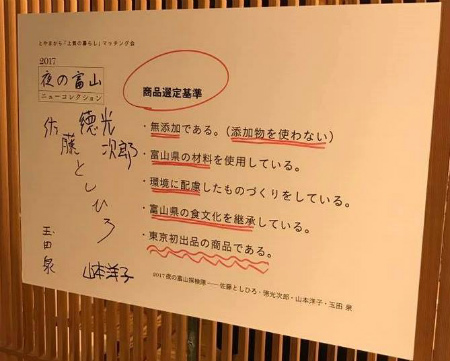 とやまから「上質の暮らし」マッチング会
2017
夜の富山
ニューコレクション
徳光
次郎
佐藤としひろ
玉田
泉
山本洋子
商品選定基準
・無添加である。(添加物を使わない)
・富山県の材料を使用している。
・環境に配慮したものづくりをしている。
・富山県の食文化を継承している。
・東京初出品の商品である。
2017夜の富山探検隊——佐藤としひろ・徳光次郎・山本洋子・玉田 泉